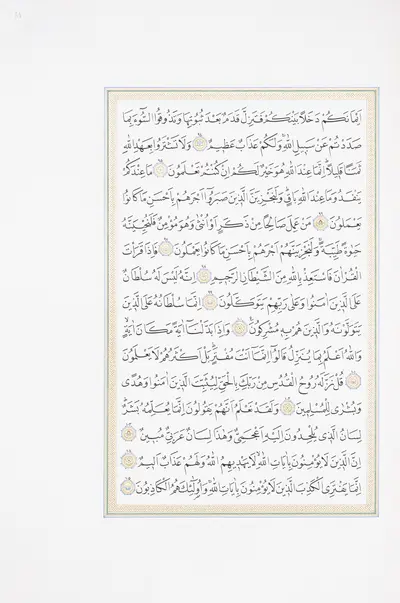 اَيْمَانَكُمْ دَخَلًا بَيْنَكُمْ فَتَزِلَّ قَدَمٌ بَعْدَ ثُبُوتِهَا وَتَذُوقُوا السُّٓوءَ بِمَا
صَدَدْتُمْ عَنْ سَبٖيلِ اللّٰهِ وَلَكُمْ عَذَابٌ عَظٖيمٌ وَلَا تَشْتَرُوا بِعَهْدِ اللّٰهِ
ثَمَنًا قَلٖيلًا اِنَّمَا عِنْدَ اللّٰهِ هُوَ خَيْرٌ لَكُمْ اِنْ كُنْتُمْ تَعْلَمُونَ مَا عِنْدَكُمْ
يَنْفَدُ وَمَا عِنْدَ اللّٰهِ بَاقٍ وَلَنَجْزِيَنَّ الَّذٖينَ صَبَرُٓوا اَجْرَهُمْ بِاَحْسَنِ مَا كَانُوا
يَعْمَلُونَ مَنْ عَمِلَ صَالِحًا مِنْ ذَكَرٍ اَوْ اُنْثٰى وَهُوَ مُؤْمِنٌ فَلَنُحْيِيَنَّهُ
حَيٰوةً طَيِّبَةً وَلَنَجْزِيَنَّهُمْ اَجْرَهُمْ بِاَحْسَنِ مَا كَانُوا يَعْمَلُونَ فَاِذَا قَرَأْتَ
الْقُرْاٰنَ فَاسْتَعِذْ بِاللّٰهِ مِنَ الشَّيْطَانِ الرَّجٖيمِ اِنَّهُ لَيْسَ لَهُ سُلْطَانٌ
عَلَى الَّذٖينَ اٰمَنُوا وَعَلٰى رَبِّهِمْ يَتَوَكَّلُونَ اِنَّمَا سُلْطَانُهُ عَلَى الَّذٖينَ
يَتَوَلَّوْنَهُ وَالَّذٖينَ هُمْ بِهٖ مُشْرِكُونَ وَاِذَا بَدَّلْنَٓا اٰيَةً مَكَانَ اٰيَةٍ
وَاللّٰهُ اَعْلَمُ بِمَا يُنَزِّلُ قَالُٓوا اِنَّمَٓا اَنْتَ مُفْتَرٍ بَلْ اَكْثَرُهُمْ لَا يَعْلَمُونَ
قُلْ نَزَّلَهُ رُوحُ الْقُدُسِ مِنْ رَبِّكَ بِالْحَقِّ لِيُثَبِّتَ الَّذٖينَ اٰمَنُوا وَهُدًى
وَبُشْرٰى لِلْمُسْلِمٖينَ وَلَقَدْ نَعْلَمُ اَنَّهُمْ يَقُولُونَ اِنَّمَا يُعَلِّمُهُ بَشَرٌ
لِسَانُ الَّذٖي يُلْحِدُونَ اِلَيْهِ اَعْجَمِيٌّ وَهٰذَا لِسَانٌ عَرَبِيٌّ مُبٖينٌ
اِنَّ الَّذٖينَ لَا يُؤْمِنُونَ بِاٰيَاتِ اللّٰهِ لَا يَهْدٖيهِمُ اللّٰهُ وَلَهُمْ عَذَابٌ اَلٖيمٌ
اِنَّمَا يَفْتَرِي الْكَذِبَ الَّذٖينَ لَا يُؤْمِنُونَ بِاٰيَاتِ اللّٰهِ وَاُولٰٓئِكَ هُمُ الْكَاذِبُونَ